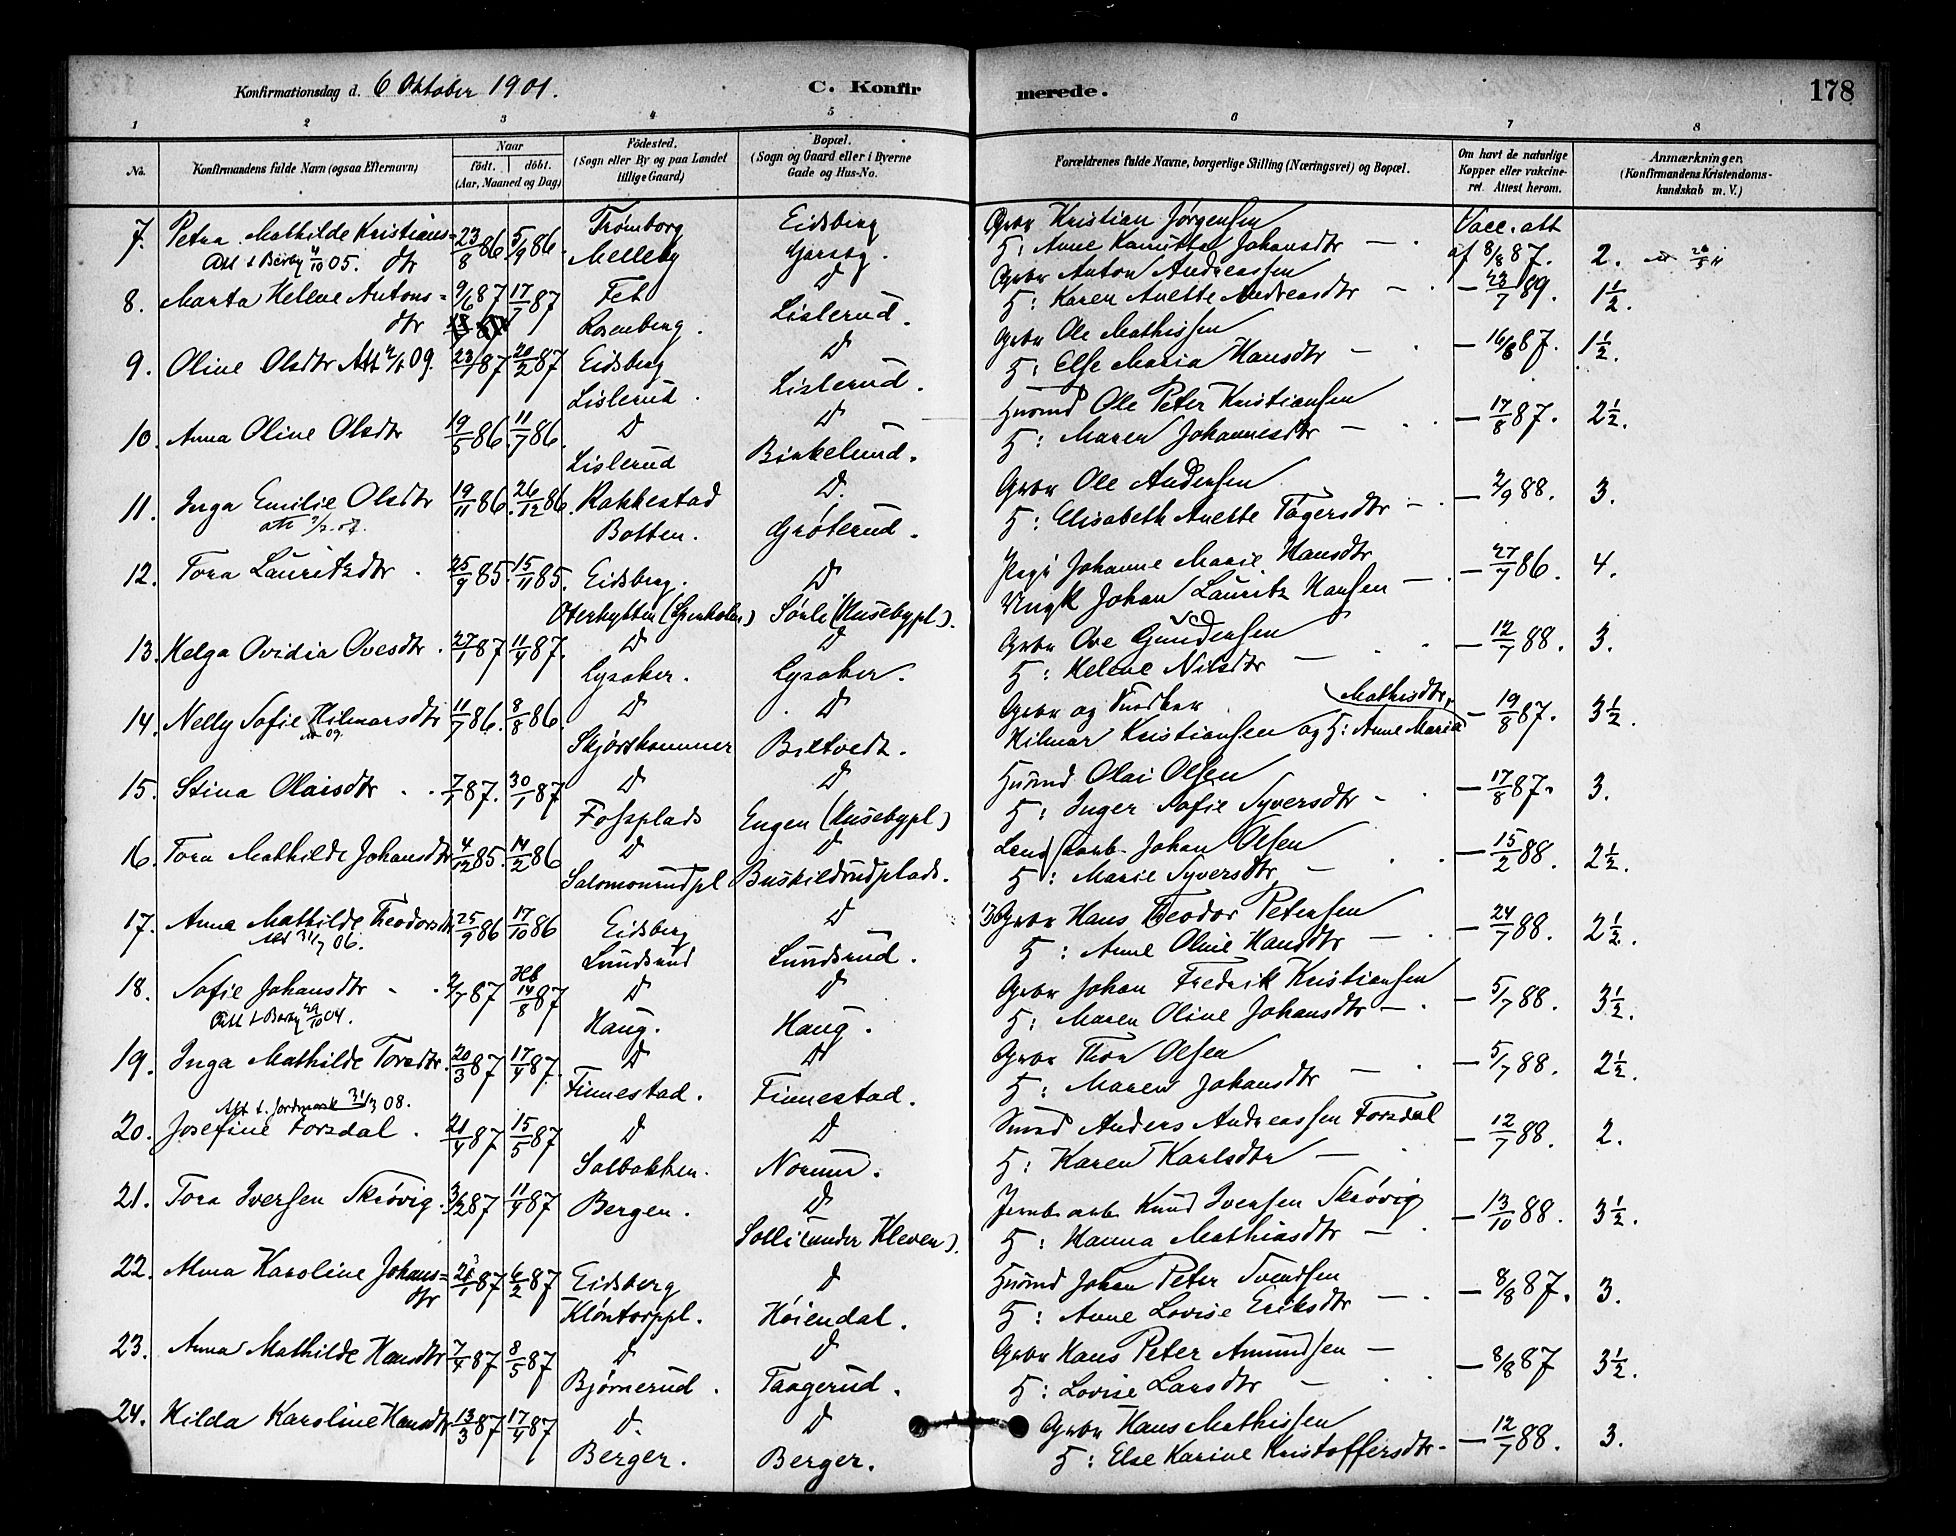 Konfirmationsdag d. 6 Oktober 1901. C. Konfirmerede. 178
1 2 3 4 5 6 7 8
No. Konfirmandens fulde Navn (ogsaa Efternavn) Naar født. døbt. (Aar, Maaned og Dag) Fødested. (Sogn eller By og paa Landet tillige Gaard) Bopæl. (Sogn og Gaard eller i Byerne Gade og Hus-No. Forældrenes fulde Navne, borgerlige Stilling (Næringsvei) og Bopæl. Om havt de naturlige Kopper eller vakcineret. Attest herom. Anmærkninger. (Konfirmandens Kristendomskundskab m. V.)
7. Petra Mathilde Kristians= 23/8 86. 5/9 86. Trømborg Eidsberg Grbr Kristian Jørgensen Vacc. att
Att t Berby 4/10 05. dtr Melleby H: Anne Johansdtr — af 8/8 87. 2.
8. Marta Helene Antons= 9/6 87 17/7 87 Fet D Grbr Anton Andreassen — 23/7 89. 1½.
dtr Rosenberg. Lislerud. H: Karen Anette Andreasdtr —
9. Oline Olsdtr 23/1 87 20/2 87 Eidsberg D Grbr Ole Mathissen — 16/8 87. 1½.
Lislerud. Lislerud. H: Else Maria Hansdtr —
10. Anna Oline Olsdtr 19/5 86. 11/7 86. D D Husmd Ole Peter Kristiansen — 17/8 87. 2½.
Lislerud Birkelund. H: Maren Johannesdtr —
11. Inga Emilie Olsdtr 19/11 86. 26/12 86. Rakkestad D. Grbr Ole Andersen — 2/9 88. 3.
Botten. Grøterud. H: Elisabeth Anette Tagersdtr —
12. Tora Lauritzdtr. 25/9 85. 15/11 85. Eidsberg. D Pige Johanne Marie Hansdtr — 27/7 86. 4.
Sørli (Husebypl). Ungk Johan Lauritz Hansen —
13. Helga Ovidia Ovesdtr. 27/1 87 11/4 87. D D Grbr Ove Gundersen — 12/7 88. 3.
Lysaker. Lysaker. H: Helene Nilsdtr —
14. Nelly Sofie Hilmarsdtr 11/7 86. 8/8 86. D D Grbr og Mathisdtr, — 19/8 87. 3½.
Bretvedt. Hilmar Kristiansen og H: Anne Maria
15. Stina Olaisdtr 7/1 87. 30/1 87 D D Husmd Olai Olsen — 17/8 87. 3.
Fossplads Engen (Husebypl) H: Inger Sofie Syversdtr —
16. Tora Mathilde Johansdtr 4/12 85. 14/2 86 D D Johan Olsen — 15/2 88. 2½.
Salomonrudpl Buskildrudplads. H: Marie Syversdtr —
17. Anna Mathilde Theodorsdtr 25/9 86 17/10 86 Eidsberg D Grbr Hans Teodor Petersen — 24/7 88. 2½.
Att 31/7 06. Lundsrud Lundsrud. H: Anne Oline Hansdtr —
18. Sofie Johansdtr 2/7 87 Hb 14/8 87 D D Grbr Johan Fredrik Kristiansen — 5/7 88. 3½.
Att t Berby 29/10 04. Haug. Haug. H: Maren Oline Johansdtr —
19. Inga Mathilde Torsdtr. 20/3 87 17/4 87. D D Grbr Thor Olsen — 5/7 88. 2½.
Finnestad. Finnestad. H: Maren Johansdtr —
Att t. 31/3 08.
20. Josefine Forsdal. 21/4 87 15/5 87 D D Anders Andreassen Forsdal — 12/7 88. 2.
Solbakken. Norum. H: Karen Karlsdtr —
21. Tora Iversen Skrøvig. 3/2 87 11/4 87 Bergen. D Jernb. arb. Knud Iversen Skrøvig — 13/10 88. 3½.
Solli (under Kleven). H: Hanna Mathiasdtr —
22. Alma Karoline Johans= 6/2 87 Eidsberg D Husmd Johan Peter Svendsen — 8/8 87. 3.
dtr Kløntorppl. Høiendal. H: Anne Lovise Eriksdtr —
23. Anna Mathilde Hansdtr 7/4 87 8/5 87 D D Grbr Hans Peter Amundsen — 8/8 87 3½.
Bjørnerud. Taagerud. H: Lovise Larsdtr —
24. Hilda Karoline Hansdtr 13/3 87 17/4 87 D. D Grbr Hans Mathissen — 12/7 88. 3.
Berger. Berger. H: Else Karine Kristoffersdtr —